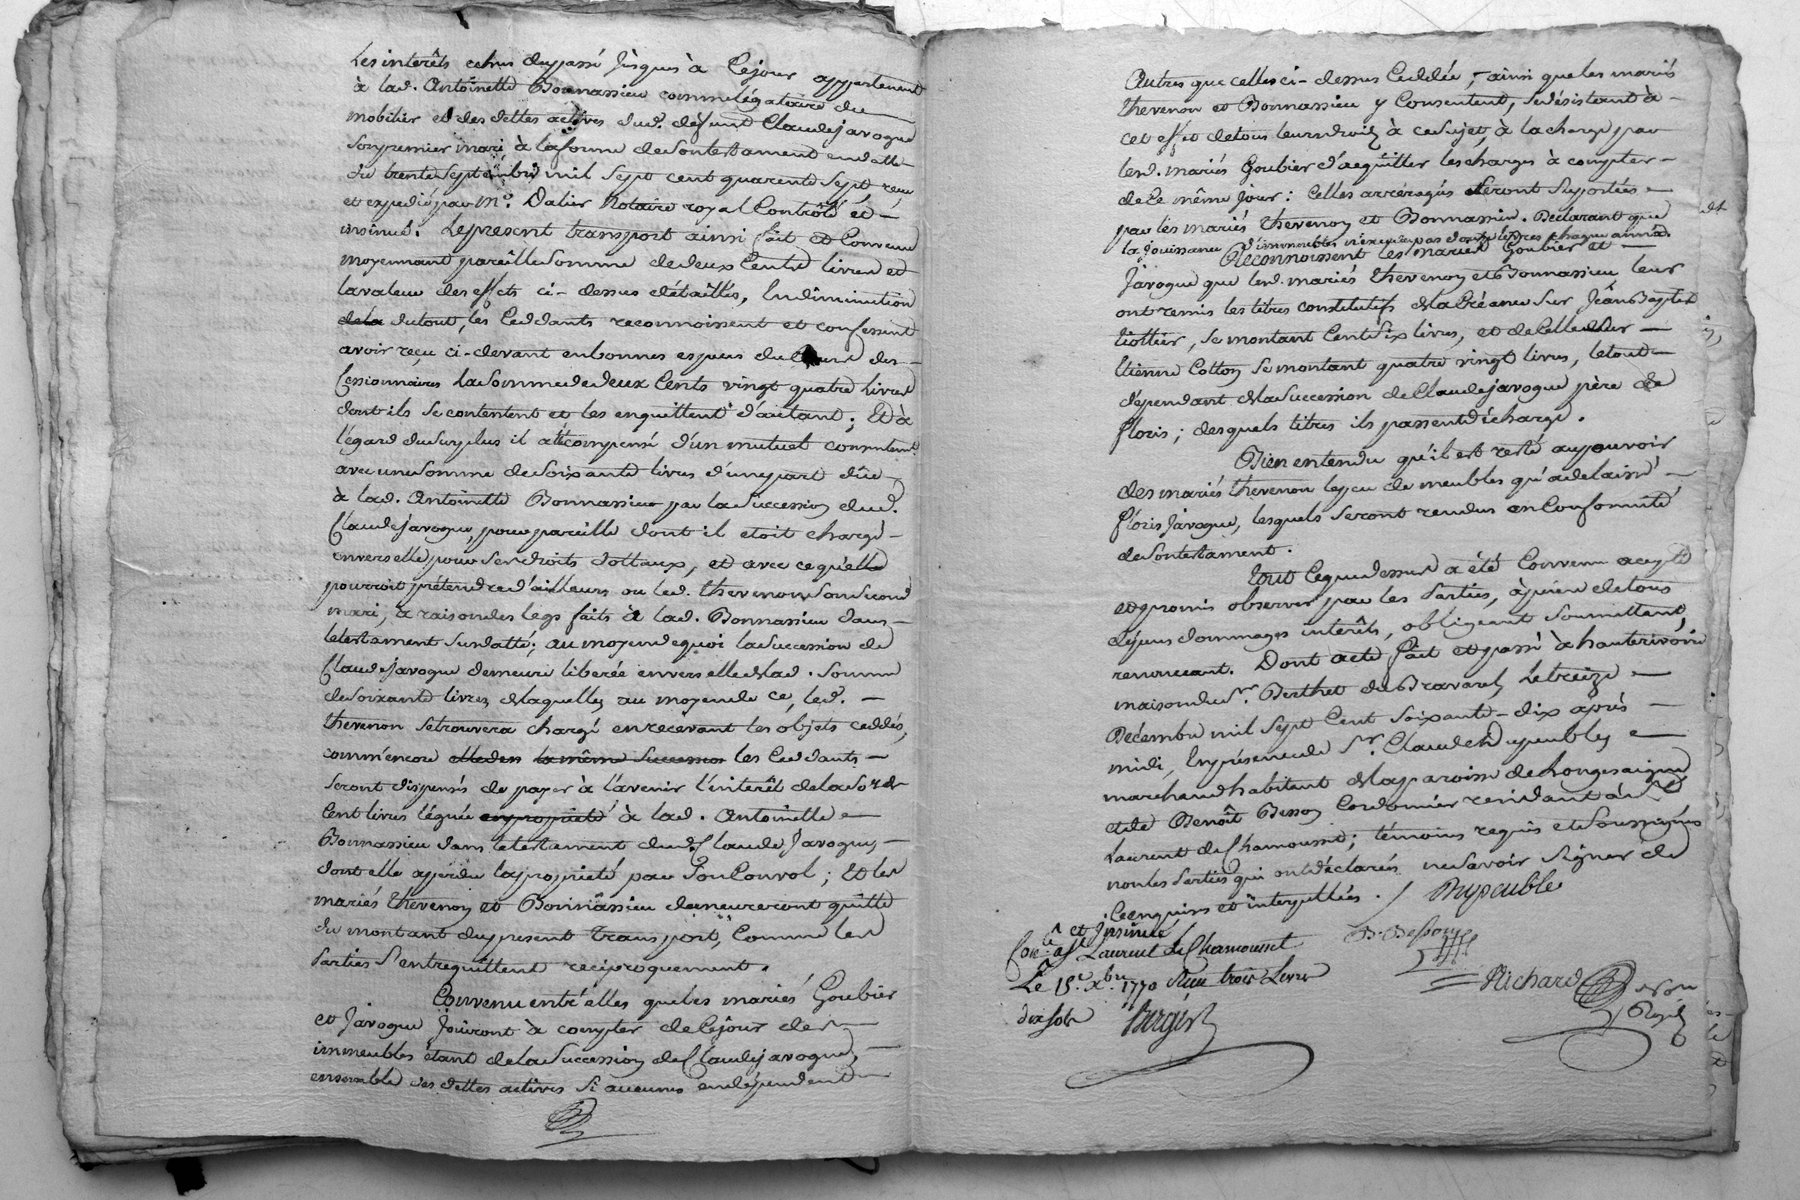 Les interêts echus dupassé jusques à cejour appartenant
à lad. Antoinette Bonnassieu commelégataire du
mobilier et des dettes actives dud. défunt Claudejavogue
sonpremier mari, à laforme desontestament endatte
du trente septembre mil sept cent quarente sept, reçu
et expedié par Me. Dalier Notaire royal Controlé et
insinué. Leprésent transport ainsi fait et convenu
moyennant pareille somme dedeux Cents livres et
lavaleur des effets ci-dessus détaillés, Endiminution
dela dutout, les Ceddants reconnoissent et confessent
avoir reçu ci-devant enbonnes especes du des
Cessionnaires lasommededeux Cents vingt quatre livres
dont ils se contentent et les enquittent d'autant; Et à
l'égard dusurplus il a été compensé d'un mutuel consentemt.
avec unesomme desoixante livres d'unepart dûe
à lad. Antoinette Bonnassieu par la succession dud.
Claudejavogue, pour pareille dont il etoit chargé
enverselle pour sesdroits dottaux, et avec cequ'elle
pourroit prétendre d'ailleurs ou led. thevenon sonsecond
mari, à raisondes legs faits à lad. Bonnassieu dans
letestament susdatté; au moyendequoi lasuccession de
Claudejavogue demeure libérée enverselledelad. somme
desoixante livres delaquelle, au moyen de ce, led.
thevenon setrouvera chargé enrecevant les objets ceddés,
comm'encore lamême succession les Ceddants
seront dispensés de payer à l'avenir l'interêt delaso. de
Cent livres léguée enpropriété à lad. Antoinette
Bonnassieu dans letestament dud. Claude Javogue
dontelle aperdu lapropriété par sonConvol; Et les
mariés thevenon et Bonnassieu demeureront quitte
du montant duprésent transport, Comme les
Parties s'entrequittent reciproquement.
Convenu entr'elles queles mariés Goubier
et Javogue Jouiront à compter deCejour des
immeubles étant delasuccession deClaudejavogue,
ensemble des dettes actives si aucunes endépendent
Autres que celles ci-dessus Ceddée, ainsi queles mariés
thevenon et Bonnassieu y Consentent, sedésistant à
cet effet detous leursdroits à cesujet, à lacharge par
lesd. mariés Goubier d'acquitter lescharges à compter
dece même jour: celles arréragés seront suportées
par les mariés thevenon et Bonnassieu. Déclarant que
la jouissance d'immeubles n'excede pas livres chaque année
Reconnoissent les mariés Goubier et
Javogue que lesd. mariés thevenon et Bonnassieu leur
ont remis les titres constitutifs delaCréance sur Jeanbaptiste
tiollier, se montant Centsix livres, et decelledesur
Etienne Cotton se montant quatre vingt livres, letout
dépendant delasuccession deClaudejavogue père de
floris; desquels titres ils passentdécharge.
Bien entendu qu'il est resté aupouvoir
des mariés thevenon lepeu de meubles qu'adelaissé
floris Javogue, lesquels seront rendus enConformité
desontestament.
Tout cequedessus a été Convenu accepté
et promis observer par les Parties, àpeine detous
dépens dommages interêts, obligeant soumettant,
renonceant. Dont acte fait et passé à hauterivoire
maisondusr. Berthet duBravard, Letreize
Décembre mil sept Cent soixante-dix après
midi, Enprésencede sr. Claude Dupeuble
marchand habitant delaparoisse delongesaigne
etde Benoît Besson Cordonnier residant à st.
Laurent deChamousset; témoins requis etsoussignés
nonles Parties qui ontdéclarés nesavoir signer de
ceenquises et interpellées. Dupeuble
Con.lé et Insinué
à st Laurent deChamousset B. Besson
Le 15e. Xbre. 1770 Reçu trois Livres Richard
dix sols Bergier